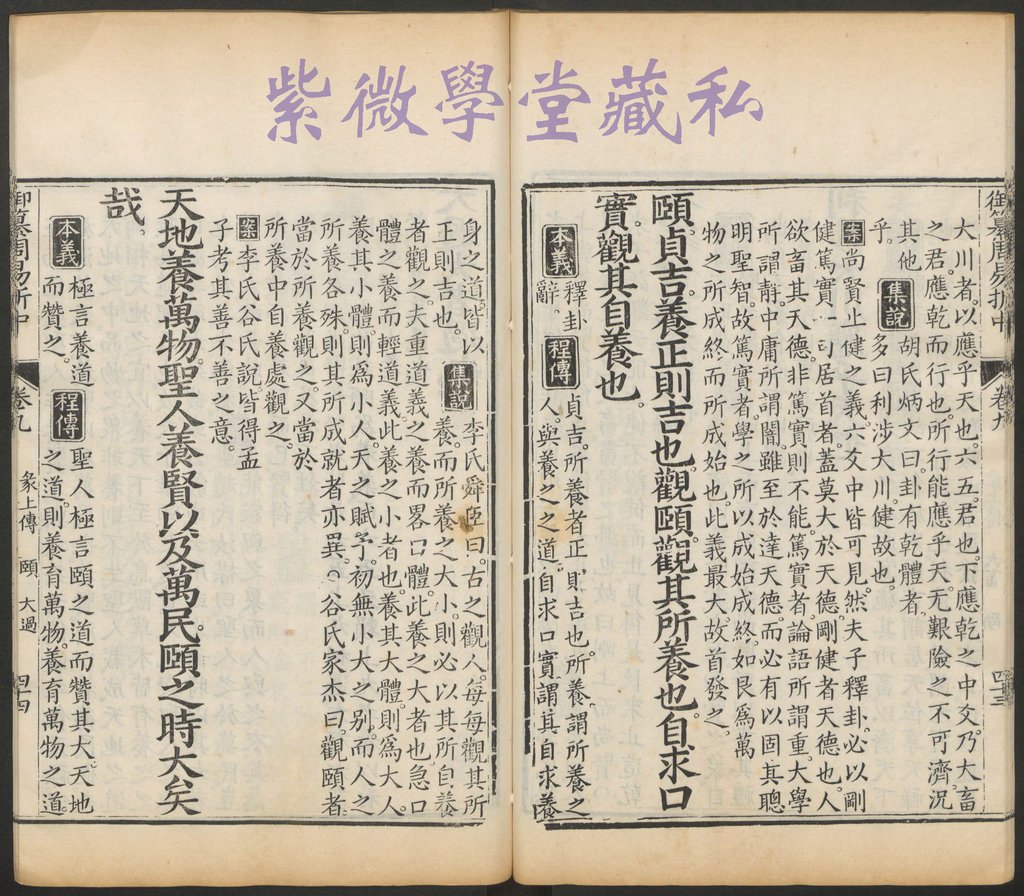 紫微學堂藏私
御纂周易折中 卷九 四十三
大川者。以應乎天也。六五君也。下應乾之中爻。乃大畜
之君。應乾而行也。所行能應乎天。无艱險之不可濟。況
其他 集說 胡氏炳文曰。卦有乾體者。
乎。 多曰利涉大川。健故也。
案尚賢止健之義。六爻中皆可見。然夫子釋卦。必以剛
健篤實一句居首者。蓋莫大於天德。剛健者天德也。人
欲畜其天德。非篤實則不能。篤實者論語所謂重。大學
所謂靜。中庸所謂闇。雖至於達天德。而必有以固其聰
明聖智。故篤實者。學之所以成始成終。如艮爲萬
物之所成終而所成始也。此義最大。故首發之。
頤。貞吉。養正則吉也。觀頤。觀其所養也。自求口
實。觀其自養也。
本義 釋卦 程傳 貞吉。所養者正則吉也。所養。謂所養之
辭。 人。與養之之道。自求口實。謂其自求養
身之道。皆以 集說 李氏舜臣曰。古之觀人。每每觀其所
正則吉也。 養。而所養之大小。則必以其所自養
者觀之。夫重道義之養而畧口體。此養之大者也。急口
體之養而輕道義。此養之小者也。養其大體。則爲大人。
養其小體。則爲小人。天之賦予。初無小大之別。而人之
所養各殊。則其所成就者亦異。○谷氏家杰曰。觀頤者。
當於所養觀之。又當於
所養中自養處觀之。
案李氏谷氏說。皆得孟
子考其善不善之意。
天地養萬物。聖人養賢以及萬民。頤之時大矣
哉。
本義 極言養道 程傳 聖人極言頤之道而贊其大。天地
而贊之。 之道。則養育萬物。養育萬物之道
御纂周易折中 卷九 彖上傳 頤 大過 四十四